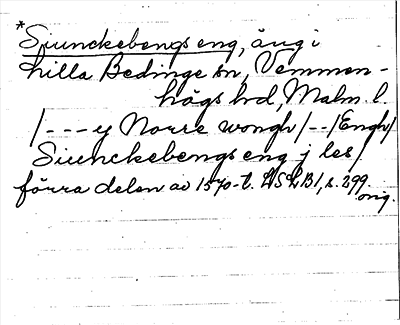 *Sjunckebengs eng, äng i
Lilla Bedinge sn, Vemmen-
högs hd, Malm. l.
/--- y Norre wongh/--/Engh/
Siunckebengs eng j les/
förra delen av 1570-t. LSLB1, s. 299.
orig.